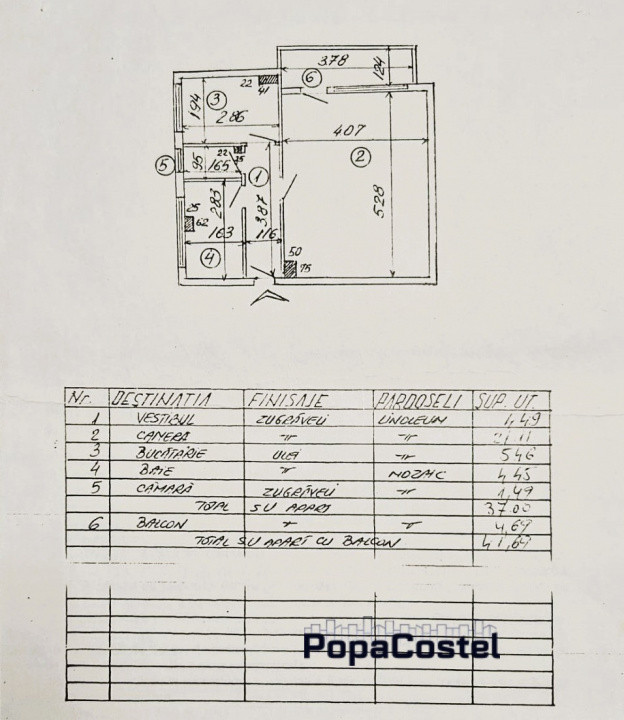 378
124
6
22
41
194
3
286
407
2
5
95
22
25
165
1
283
387
528
62
163
116
4
50
75
Nr. DESTINATIA FINISAJE PARDOSELI SUP. UT.
1 VESTIBUL ZUGRĂVELI LINOLEUM 4,49
2 CAMERA -"- -"- 21,11
3 BUCĂTĂRIE ULEI -"- 5,46
4 BAIE -"- MOZAIC 4,45
5 CĂMARĂ ZUGRĂVELI -"- 1,49
TOTAL SU APART 37,00
6 BALCON -"- -"- 4,69
TOTAL SU APART CU BALCON 41,69
PopaCostel